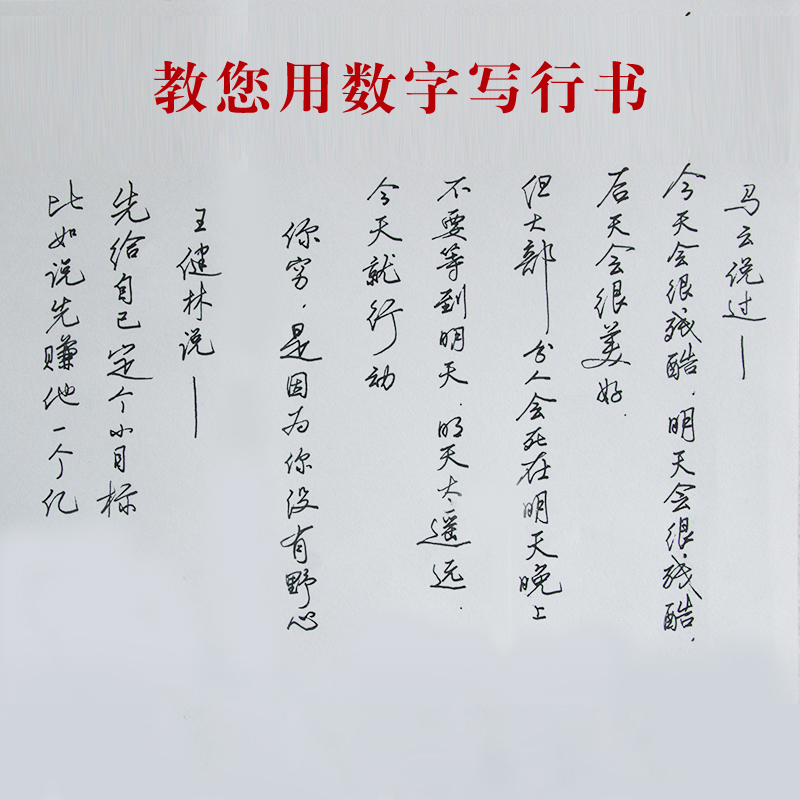 教您用数字写行书
马云说过——
今天会很残酷，明天会很残酷，
后天会很美好．
但大部分人会死在明天晚上
不要等到明天．明天太遥远．
今天就行动
你穷，是因为你没有野心
王健林说——
先给自己定个小目标
比如说先赚他一个亿